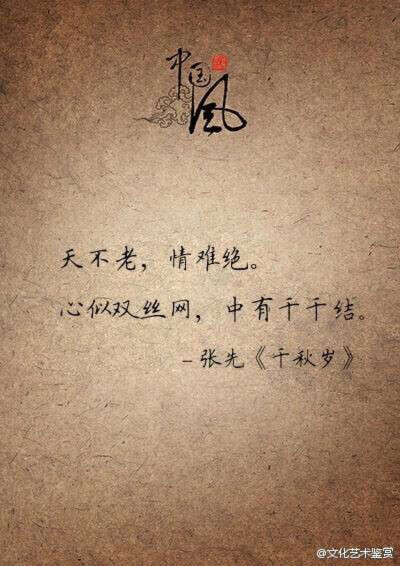 中国风
天不老，情难绝。
心似双丝网，中有千千结。
–张先《千秋岁》
@文化艺术鉴赏